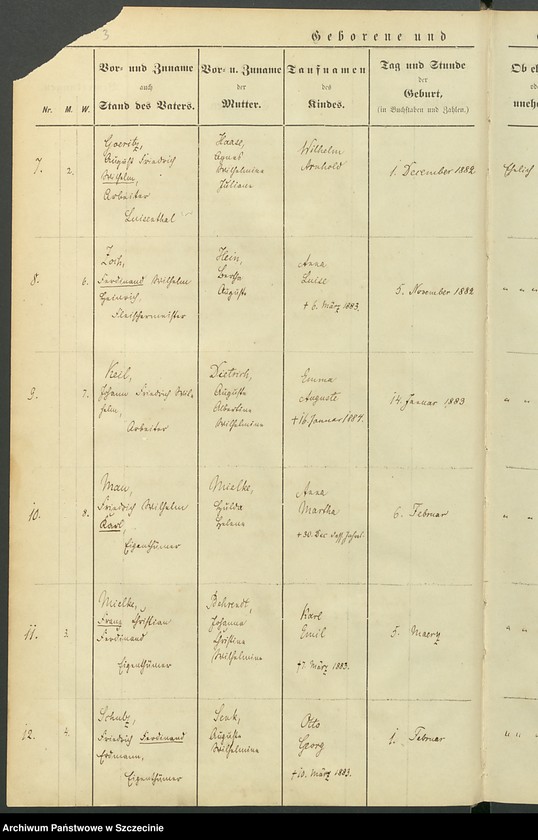 3
Geborene und
Nr.
M.
W.
Vor- und Zuname
auch
Stand des Vaters.
Vor- u. Zuname
der
Mutter.
Taufnamen
des
Kindes.
Tag und Stunde
der
Geburt,
(in Buchstaben und Zahlen.)
Ob eh
od
uneh
7.
2.
Goeritz,
August Friedrich
Wilhelm,
Arbeiter
Luisenthal
Haase,
Agnes
Wilhelmine
Juliane
Wilhelm
Arnhold
1. December 1882
Ehelich
8.
6.
Zoch,
Ferdinand Wilhelm
Heinrich,
Fleischermeister
Hein,
Bertha
Auguste
Anna
Luise
† 6. März 1883.
5. November 1882
" "
9.
7.
Keil,
Johann Friedrich Wil-
helm,
Arbeiter
Dietrich,
Auguste
Albertine
Wilhelmine
Emma
Auguste
† 16. Januar 1884.
14. Januar 1883
" "
10.
8.
Mau,
Friedrich Wilhelm
Karl,
Eigenthümer
Mielke,
Hulda
Helene
Anna
Martha
† 30. Dec.
6. Februar
" "
11.
3.
Mielke,
Franz Christian
Ferdinand
Eigenthümer
Behrendt,
Johanna
Christine
Wilhelmine
Karl
Emil
† 7. März 1883.
5. Maerz
" "
12.
4.
Schulz,
Friedrich Ferdinand
Erdmann,
Eigenthümer
Senk,
Auguste
Wilhelmine
Otto
Georg
† 10. März 1883.
1. Februar
" "
Archiwum Państwowe w Szczecinie